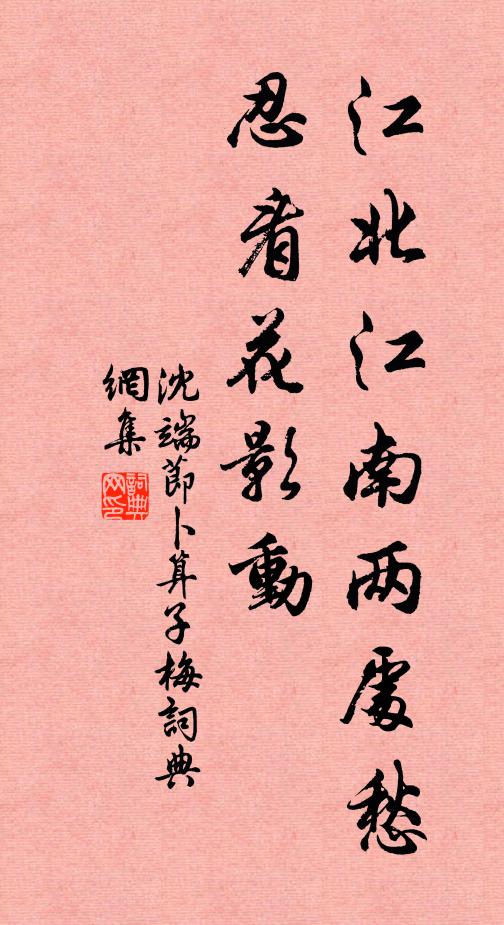 江北江南两處愁
忍看花影動
沈端節卜算子梅詞典
網集
詞典
网印